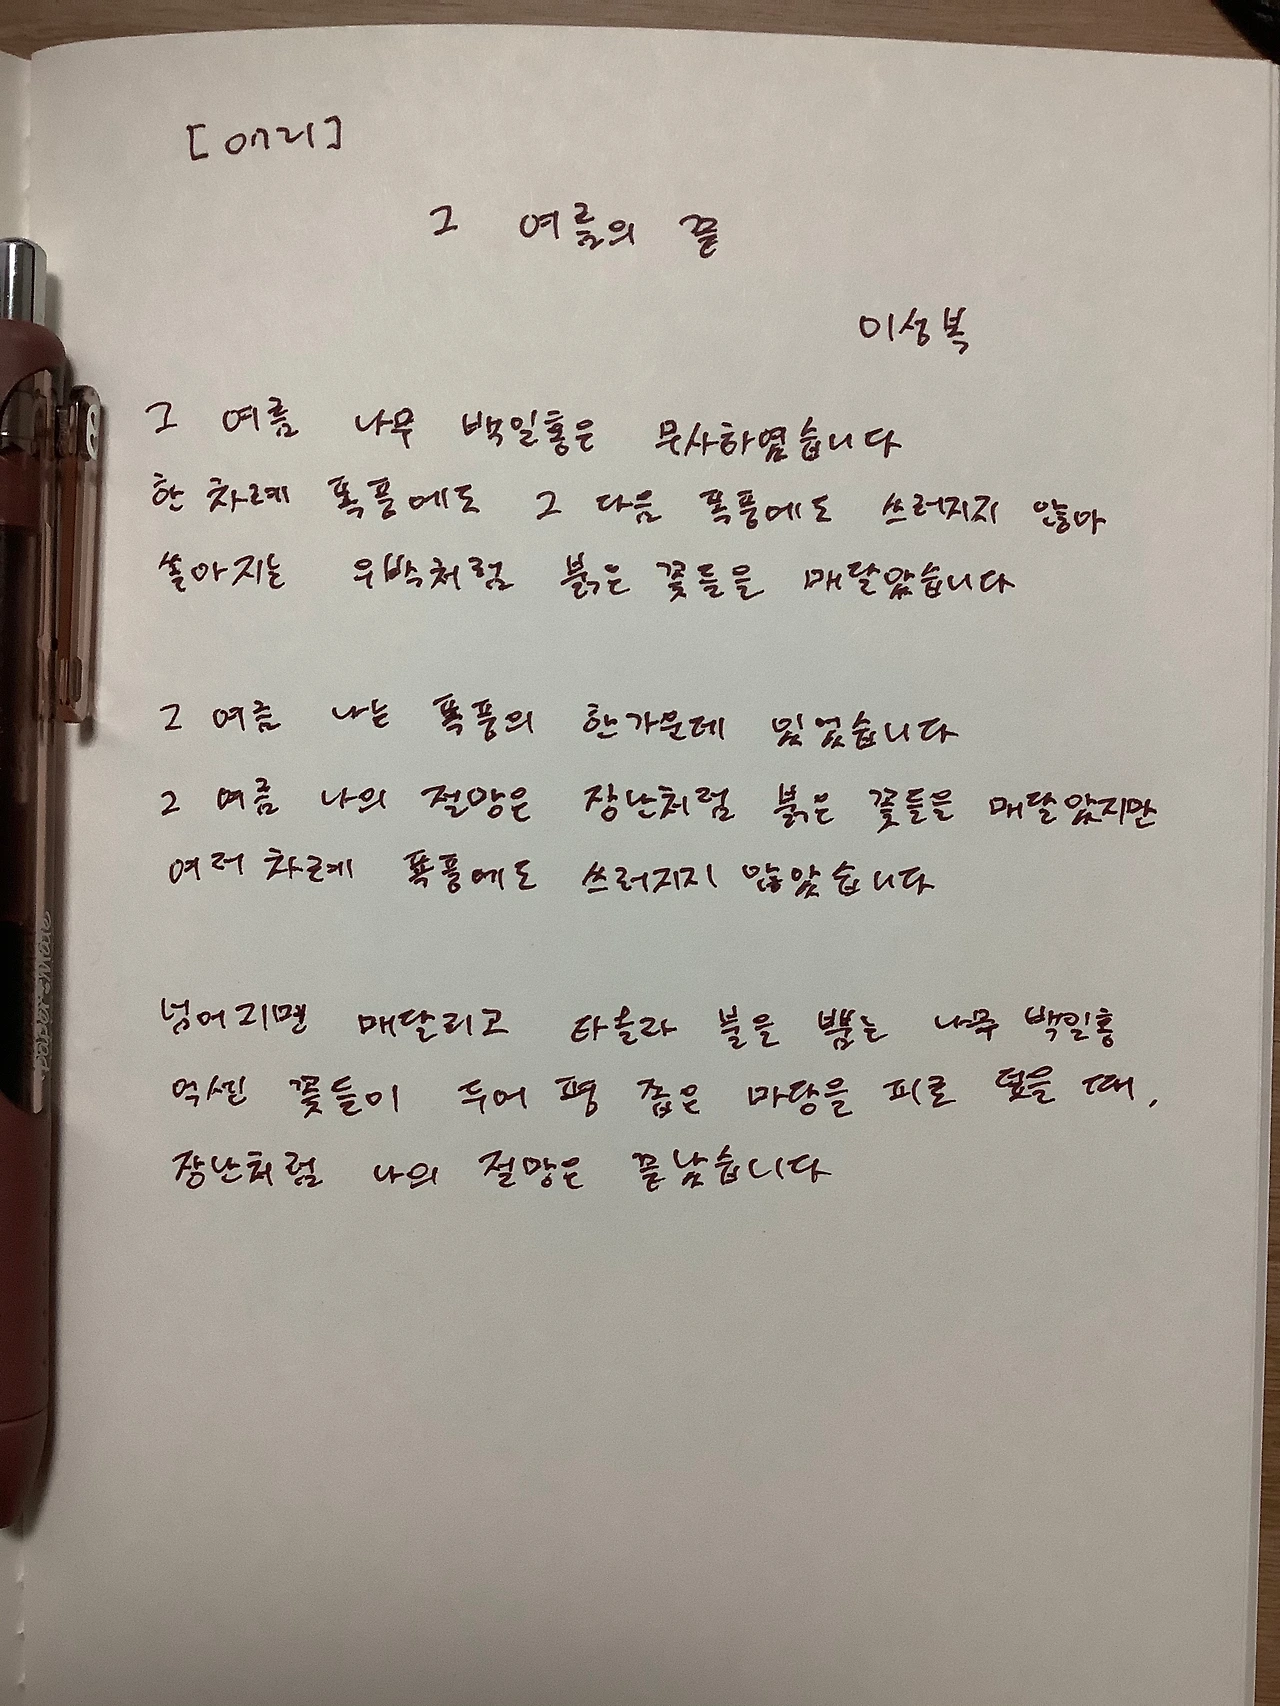 [애리]
그 여름의 끝
이성복
그 여름 나무 백일홍은 무사하였습니다
한 차례 폭풍에도 그 다음 폭풍에도 쓰러지지 않아
쏟아지는 우박처럼 붉은 꽃들을 매달았습니다
그 여름 나는 폭풍의 한가운데 있었습니다
그 여름 나의 절망은 장난처럼 붉은 꽃들을 매달았지만
여러 차례 폭풍에도 쓰러지지 않았습니다
넘어지면 매달리고 타올라 불을 뿜는 나무 백일홍
억센 꽃들이 두어 평 좁은 마당을 피로 덮을 때,
장난처럼 나의 절망은 끝났습니다
PaperMate